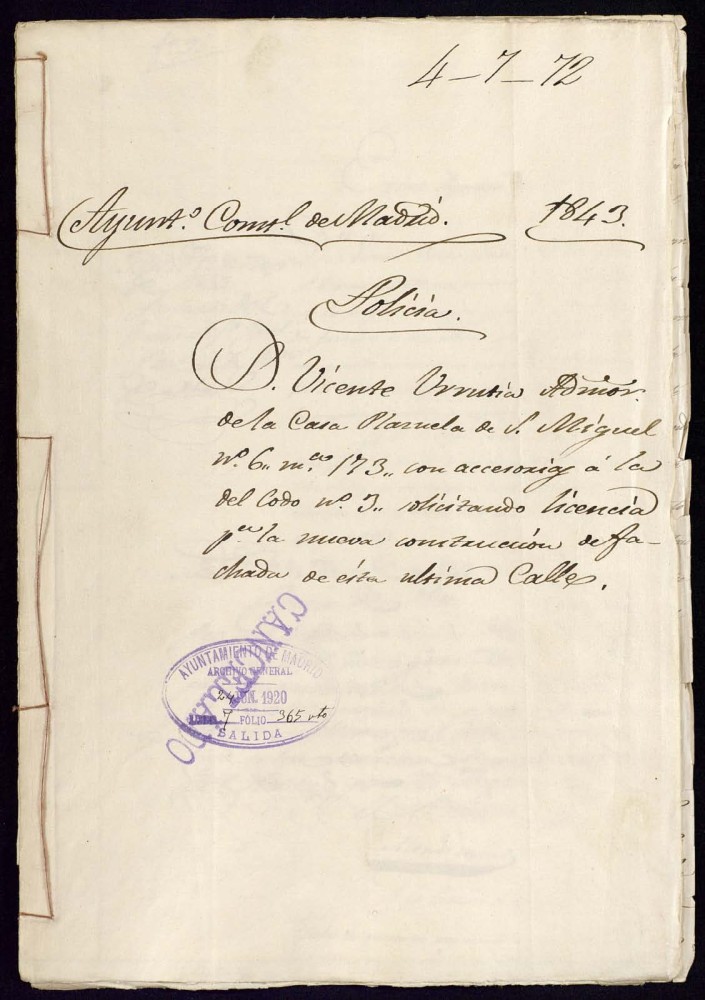 4-7-72
Ayunt.º Const.l de Madrid. 1843.
Policia.
D. Vicente Urrutia Admor.
de la Casa Plazuela de S. Miguel
nº. 6.. m.na 173.. con accesorias á la
del Codo nº. 3.. solicitando licencia
p.a la nueva construccion de fa-
chada de ésta ultima Calle.
CANCELADO
AYUNTAMIENTO DE MADRID
ARCHIVO GENERAL
24 JUN. 1920
7 FOLIO 365 vto
SALIDA